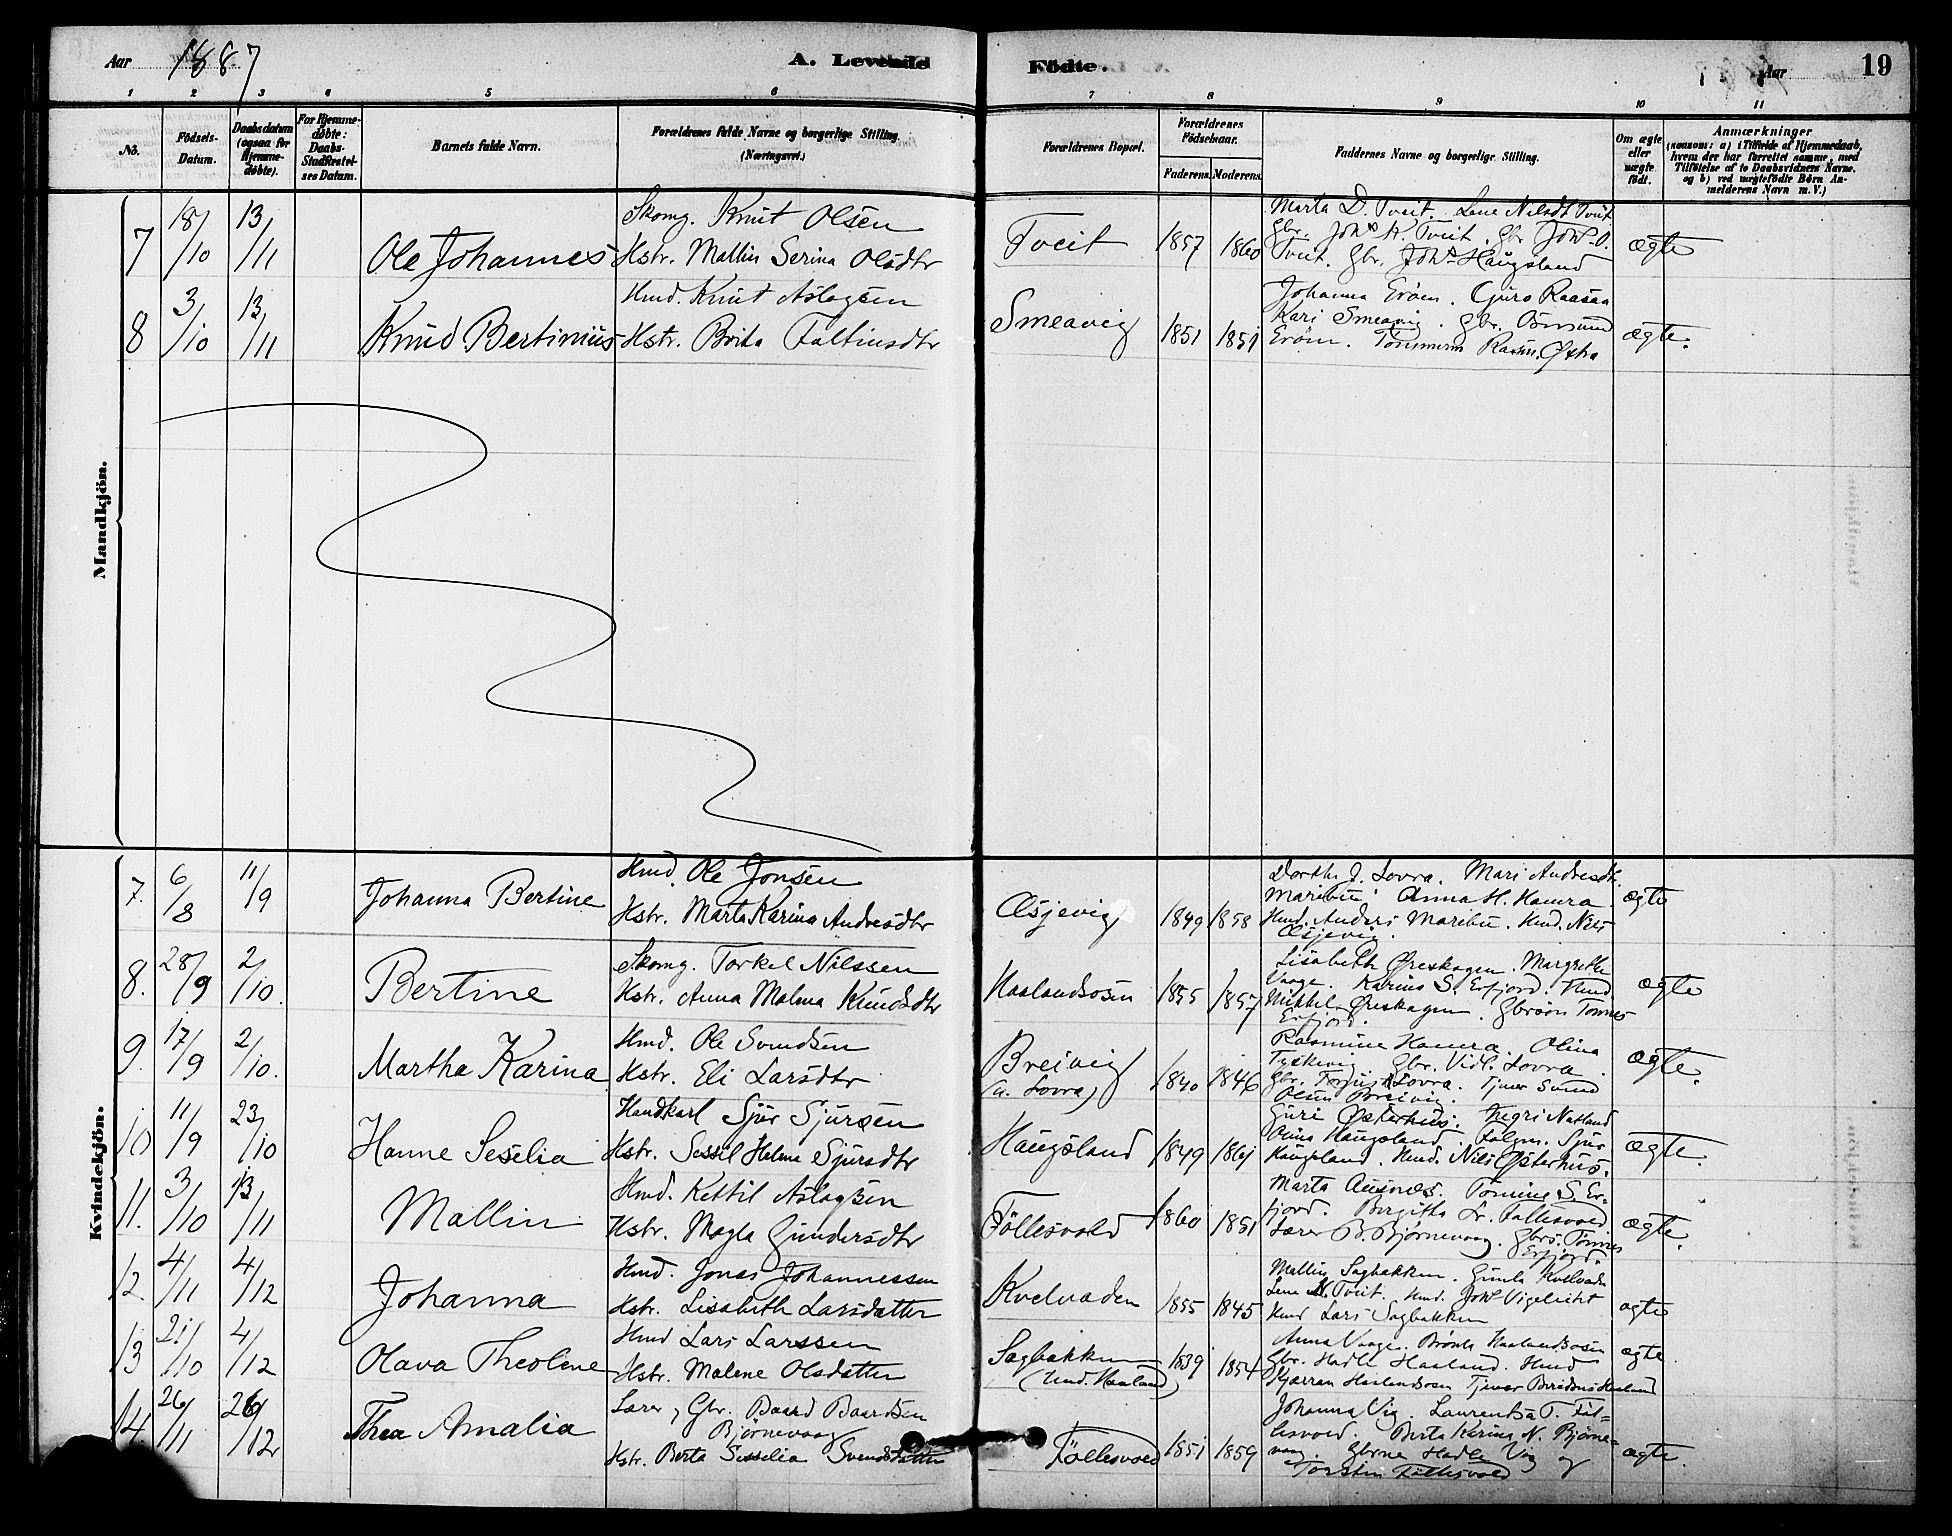 Aar 1887 A. Levende Födte. Aar 19
1 2 3 4 5 6 7 8 9 10 11
No.
Födsels-Datum.
Daabsdatum (ogsaa for Hjemmedøbte).
For Hjemmedøbte: Daabs-Stadfæstelses Datum.
Barnets fulde Navn.
Forældrenes fulde Navne og borgerlige Stilling. (Næringsvei.)
Forældrenes Bopæl.
Forældrenes Födselsaar.
Faderens. Moderens.
Faddernes Navne og borgerlige Stilling.
Om ægte eller uægte født.
Anmærkninger
(saasom: a) i Tilfælde af Hjemmedaab,
hvem der har forrettet samme, med
Tilføielse af to Daabsvidners Navne.
og b) ved uægtefødte Børn An-
melderens Navn m. V.)
Mandkjön.
7 18/10 13/11 Ole Johannes
Skomg. Knut Olsen
Hstr. Mallin Serina Olsdtr
Tveit 1857 1860
Marta D. Tveit. Lene Nilsdt Tveit
Gbr. Johs K. Tveit. Gbr. Johs O.
Tveit. Gbr. Johs Haugsland
ægte
8 3/10 13/11 Knud Bertinius
Hmd. Knut Aslagsen
Hstr. Brita Faltinsdtr
Smeavig 1851 1851
Johanna Erøen. Guro Raasaa
Kari Smeavig. Gbr.
Erøen. Tømmerm Rasm. Østra
ægte.
Kvindekjön.
7. 6/8 11/9 Johanna Bertine
Hmd. Ole Jonsen
Hstr. Marta Karina Andresdtr
Øsjevig 1849 1858
Dorthe J. Lovra. Mari Andresdt.
Maribu. Anna H. Hamra
Hmd. Anders Maribu. Hmd. Nils
Øsjevig.
ægte
8. 28/9 2/10. Bertine
Skomg. Torkel Nilssen
Hstr. Anna Malena Knudsdtr
Haalandsosen 1855 1857
Lisabeth Øreskagen. Margrethe
Vaage. Karine S. Erfjord. Hmd
Mikkel Øreskagen. Gbrsøn Tønnes
Erfjord.
ægte
9. 17/9 2/10. Martha Karina
Hmd. Ole Svendsen
Hstr. Eli Larsdtr
Breivig
(u. Lovra) 1840 1846
Rasmine Hamra. Olina
Tyskevig. Gbr. Vidl. Lovra.
Gbr. Lovra. Tjener Svend
Olsen Breivig.
ægte.
10 11/9 23/10 Hanne Seselia
Handkarl Sjur Sjursen
Hstr. Sessil Helene Sjursdtr
Haugsland 1849 1861
Guri Østerhus. Ingri Natland
Olina Haugsland. Følgm. Sjur
Haugsland. Hmd. Nils Østerhus.
ægte.
11. 3/10 13/11 Mallin
Hmd. Kettil Aslagsen
Hstr. Magla Gundersdtr
Föllesvold 1860 1851
Marta Ausnes. Tomine S. Er-
fjord. Birgitha Föllesvold
Lærer B. Bjørnevaag. Gbrs. Tønnes
Erfjord.
ægte.
12 4/11 4/12 Johanna
Hmd. Jonas Johannessen
Hstr. Lisabeth Larsdatter
Kvelvaden 1855 1845
Mallin Sagbakken. Gunla Kvelvaden
Lene Tveit. Hmd. Johs Vigeleiket
Hmd Lars Sagbakken
ægte
13 21/10 4/12 Olava Theoline
Hmd Lars Larssen
Hstr. Malene Olsdatter
Sagbakken
(Und. Haaland) 1839 1854
Anna Vaage. Haalandsosen
Gbr. Hadle Haaland. Hmd
Haalandsosen Tjener Haaland
ægte.
14 26/11 26/12 Thea Amalia
Lærer, Gbr. Baard Baardsen
Bjørnevaag
Hstr. Berta Sesselia Svendsdatter
Föllesvold 1851 1859
Johanna Vig. Laurentsa T. Föl-
lesvold. Berta Karina N. Bjørne-
vaag. Gbrne Hadle Vig og
Torstein Föllesvold
ægte.